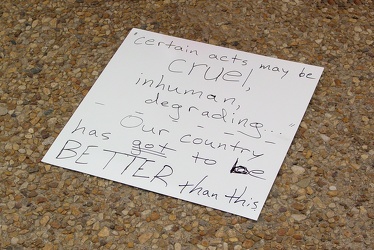 "certain acts may be
cruel,
inhuman,
degrading..."
- Our country - - - -
has got to be
BETTER than this